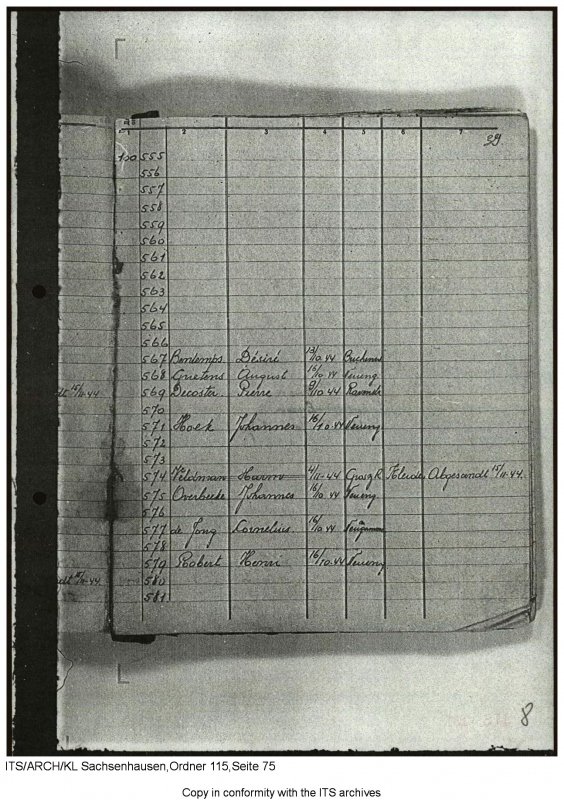 1 2 3 4 5 6 7 39
130 555
556
557
558
559
560
561
562
563
564
565
566
567 Bontemps Désiré 13/10 44 Buchenw
568 Grietens August 16/10 44 Neueng
dt 15/11.44 569 Decoster Pierre 9/10 44
570
571 Hoek Johannes 16/10 44 Neueng
572
573
574 Veldman Harm 4/11-44 Kleider Abgesandt 15/11.44.
575 Overbeeke Johannes 16/10 44 Neueng
576
577 de Jong Cornelius 16/10 44 Neuengamme
578
579 Robert Henri 16/10 44 Neueng
dt 15/11.44 580
581
8
ITS/ARCH/KL Sachsenhausen,Ordner 115,Seite 75
Copy in conformity with the ITS archives